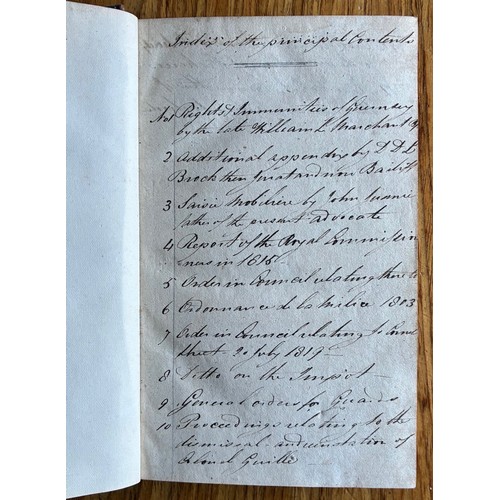 Index of the principal Contents
No 1 Rights & Immunities of Guernsey
by the late William Le Marchant
2 Additional appendix by D D L
Brock then Jurat and now Bailiff
3 Saisie Mobiliere by John
father of the present advocate
4 Report of the Royal Commission
ners in 1815
5 Order in Council relating thereto
6 Ordonnance de la Milice 1803
7 Order in Council relating to
Street 20 July 1819
8 Ditto on the Impot
9 General orders for
10 Proceedings relating to the
dismissal and of
Colonel Guille